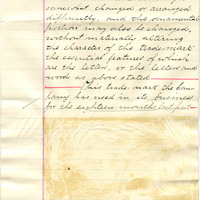 somewhat changed or arranged
differently, and the ornamental
portion may also be changed,
without materially altering
the character of the trade-mark
the essential features of which
are the letter, or the letters and
words as above stated
This trade-mark the Com-
pany has used in its business
for the eighteen months last past